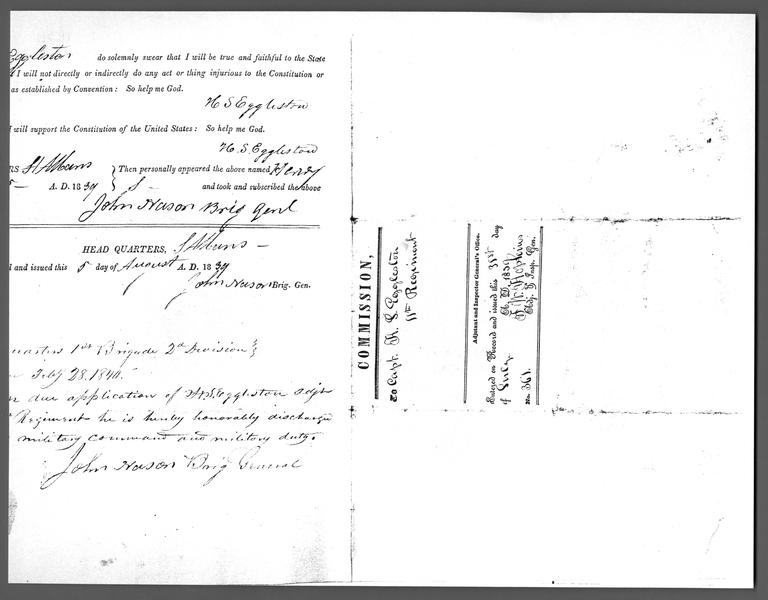 Eggleston do solemnly swear that I will be true and faithful to the State
I will not directly or indirectly do any act or thing injurious to the Constitution or
as established by Convention: So help me God.
H S Eggleston
I will support the Constitution of the United States: So help me God.
H. S. Eggleston
St Albans } Then personally appeared the above named Henry
A. D. 1839 } S — and took and subscribed the above
John Nason Brig Genl
HEAD QUARTERS, St Albans —
and issued this 5 day of August A. D. 1839
John Nason Brig. Gen.
quarters 1st Brigade 2d Division }
Feby 28. 1840.
due application of H. S. Eggleston
Regiment he is hereby honorably discharged
military command and military duty.
John Nason Brig General
COMMISSION,
To Capt. H. S. Eggleston
11th Regiment
Adjutant and Inspector General's Office.
Entered on Record and issued this 31st day
of July A. D. 1839
F. W. Hopkins
Adj. & Insp. Gen.
No. 361.